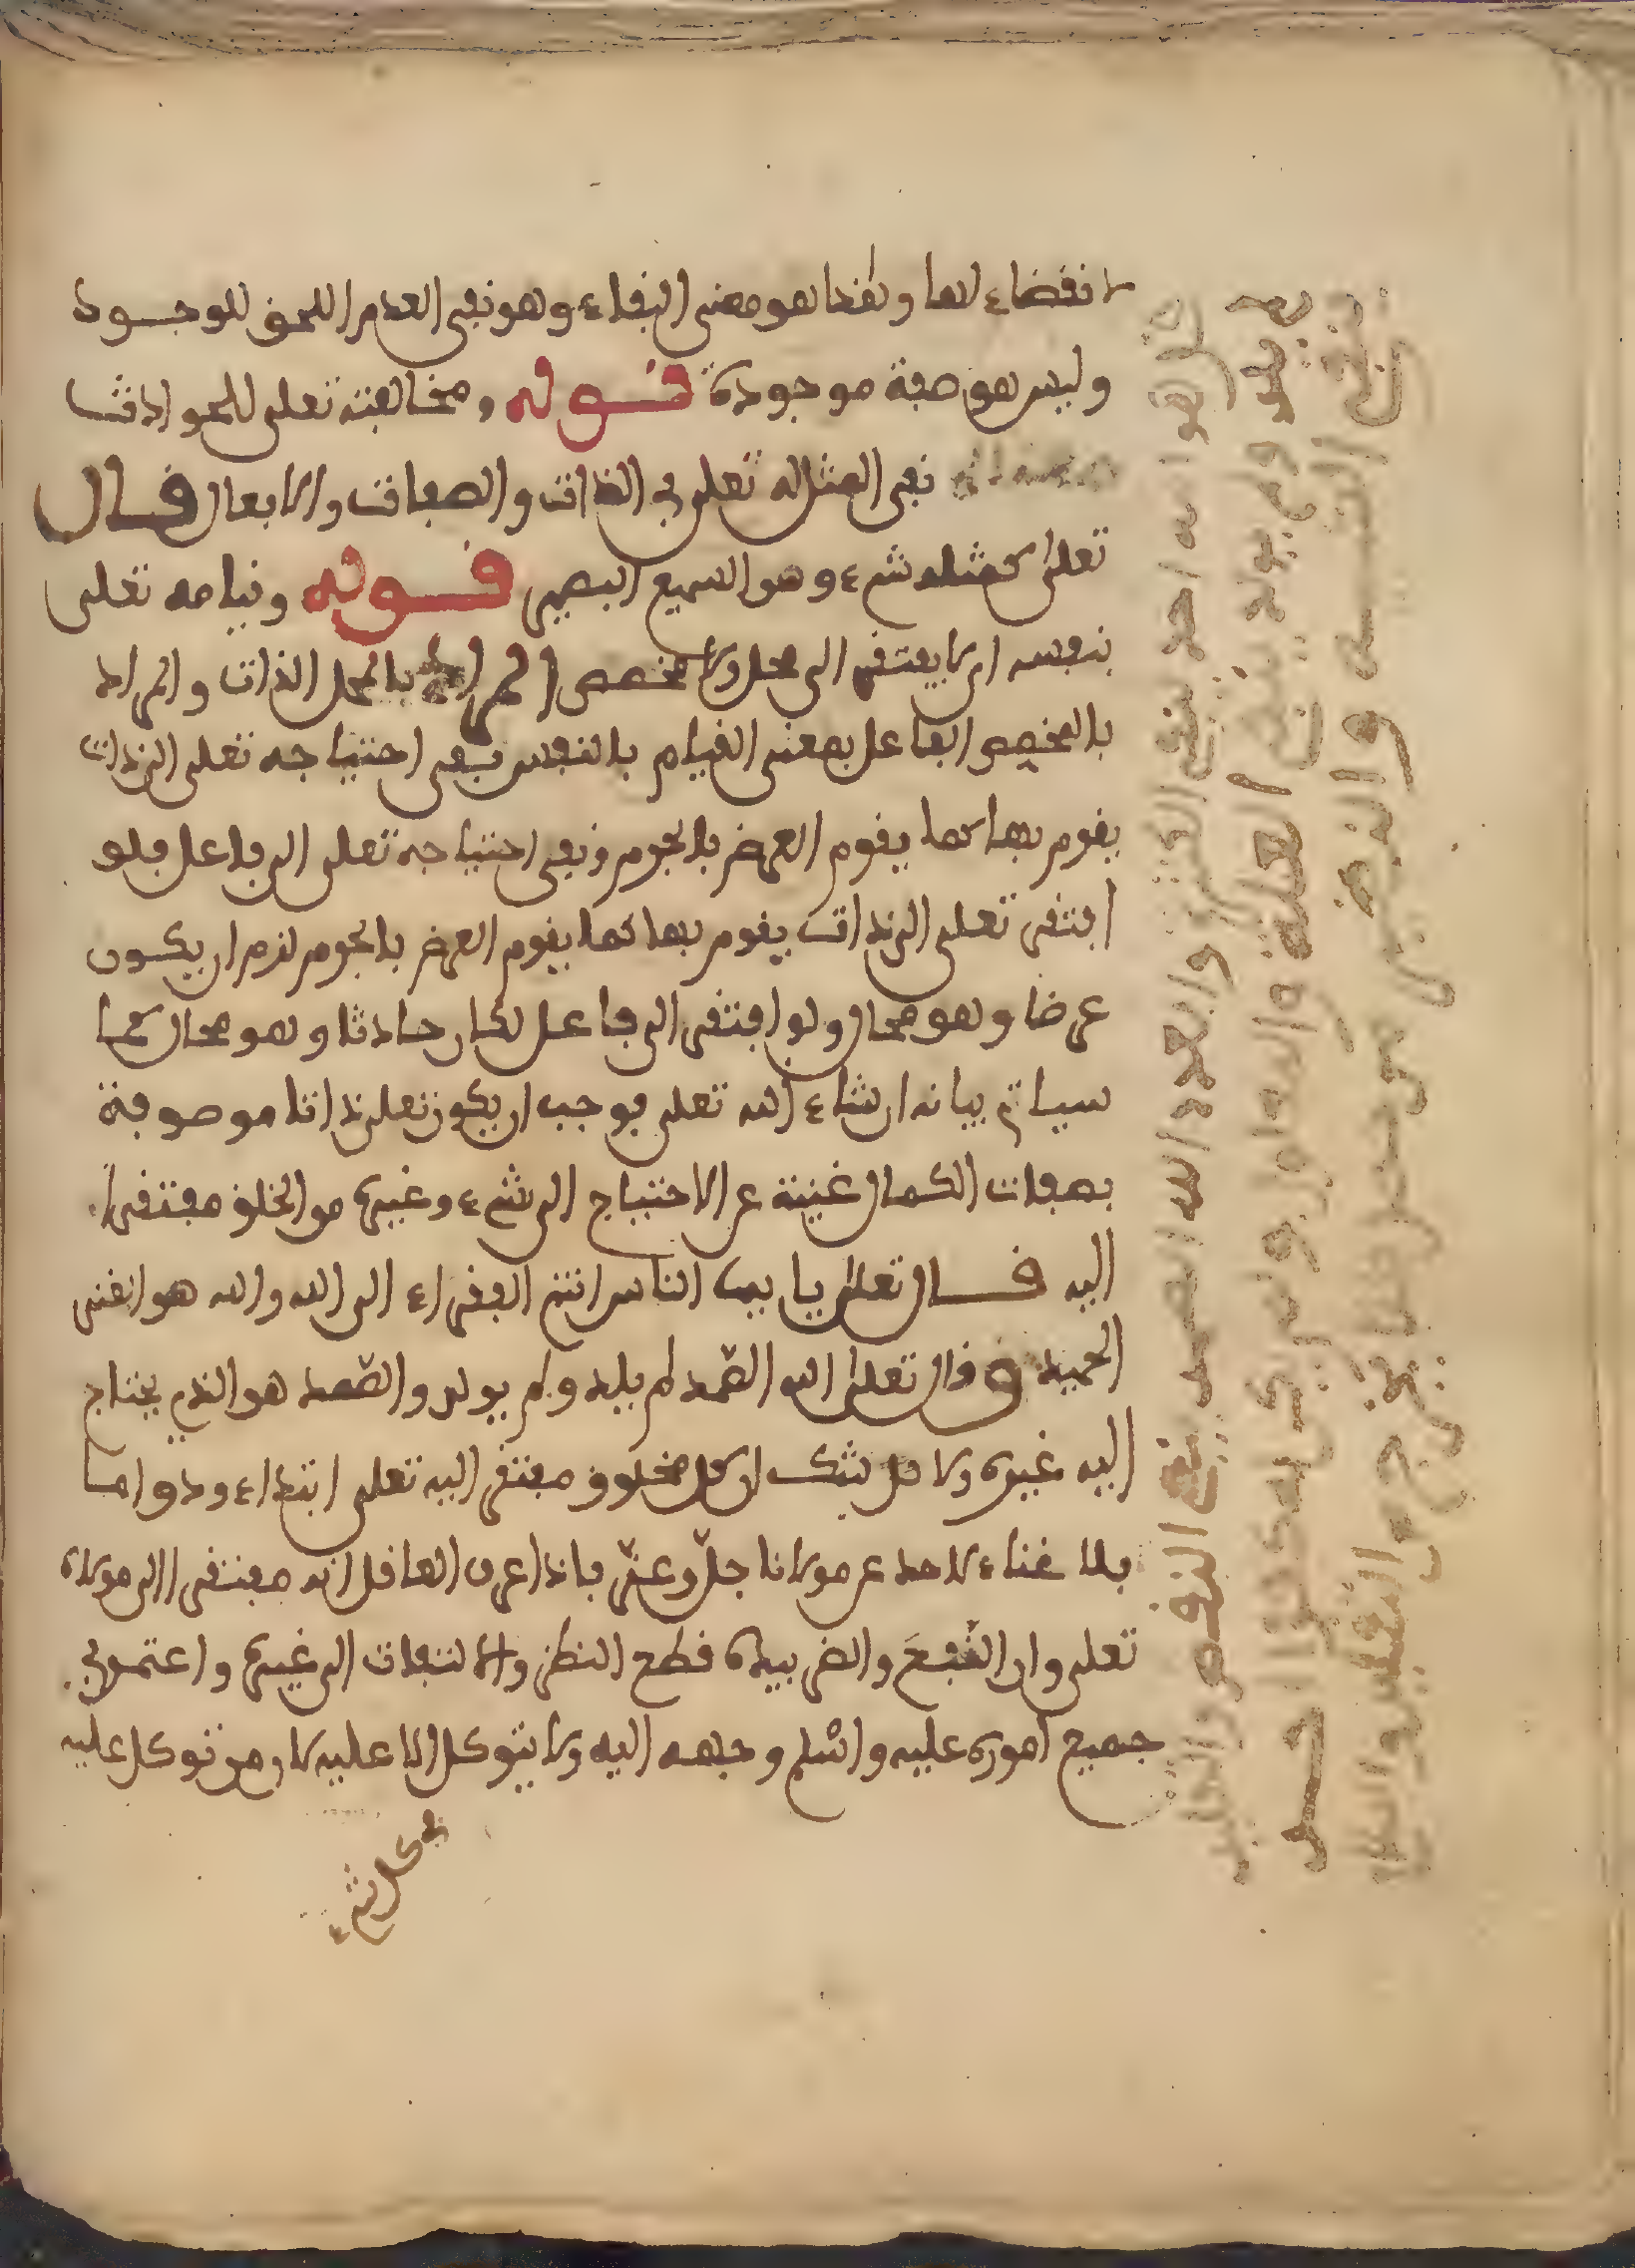 لا نقضاء لها وهذا هو معنى البقاء وهو نفي العدم اللاحق للوجود
وليس هو صفة موجودة قوله ومخالفته تعلى للحوادث
نفي المثل له تعلى في الذات والصفات والابعال قال
تعلى كمثله شيء وهو السميع البصير قوله وقيامه تعلى
بنفسه اي لا يفتقر الى محل ولا مخصص المراد بالمحل الذات والمراد
بالمخصص الفاعل بمعنى القيام بالنفس نفي احتياجه تعلى الى ذات
يقوم بها كما يقوم العرض بالجرم ونفي احتياجه تعلى الى فاعل فلو
افتقر تعلى الى ذات يقوم بها كما يقوم العرض بالجرم لزم ان يكون
عرضا وهو محال ولو افتقر الى فاعل لكان حادثا وهو محال كما
سياتي بيانه ان شاء الله تعلى فوجب ان يكون تعلى ذاتا موصوفة
بصفات الكمال غنية عن الاحتياج الى شيء وغيره من الخلق مفتقرا
اليه قال تعلى يا ايها الناس انتم الفقراء الى الله والله هو الغني
الحميد وقال تعلى الله الصمد لم يلد ولم يولد والصمد هو الذي يحتاج
اليه غيره ولا شك ان كل مخلوق مفتقر اليه تعلى ابتداء ودواما
فلا غناء لاحد عن مولانا جل وعز فاذا عرف العاقل انه مفتقر الى مولاه
تعلى وان النفع والضر بيده قطع النظر والالتفات الى غيره واعتمد في
جميع اموره عليه واسلم وجهه اليه ولا يتوكل الا عليه لان من توكل عليه
في كل شيء
قل هو الله احد ينفي الكثرة والعدد الله الصمد ينفي النقص
لم يلد ولم يولد ينفي العلة ولم يكن له كفؤا احد
ينفي الشبيه